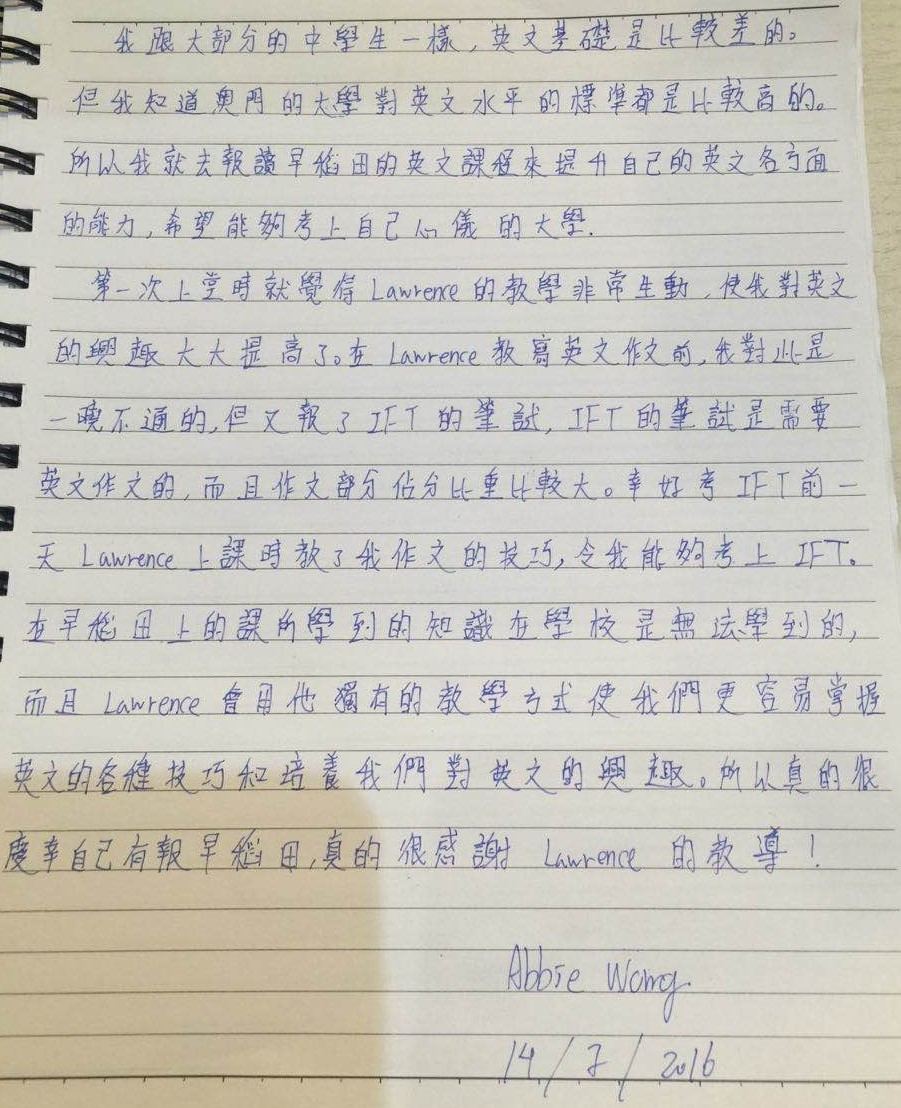 我跟大部分的中學生一樣，英文基礎是比較差的。
但我知道奧門的大學對英文水平的標準都是比較高的。
所以我就去報讀早稻田的英文課程來提升自己的英文各方面
的能力，希望能夠考上自己心儀的大學.
第一次上堂時就覺得Lawrence的教學非常生動，使我對英文
的興趣大大提高了。在Lawrence教寫英文作文前，我對此是
一曉不通的，但又報了IFT的筆試，IFT的筆試是需要
英文作文的，而且作文部分佔分比重比較大。幸好考IFT前一
天Lawrence上課時教了我作文的技巧，令我能夠考上IFT。
在早稻田上的課所學到的知識在學校是無法學到的，
而且Lawrence會用他獨有的教學方式使我們更容易掌握
英文的各種技巧和培養我們對英文的興趣。所以真的很
慶幸自己有報早稻田，真的很感謝Lawrence的教導！
Abbie Wong.
14/7/2016